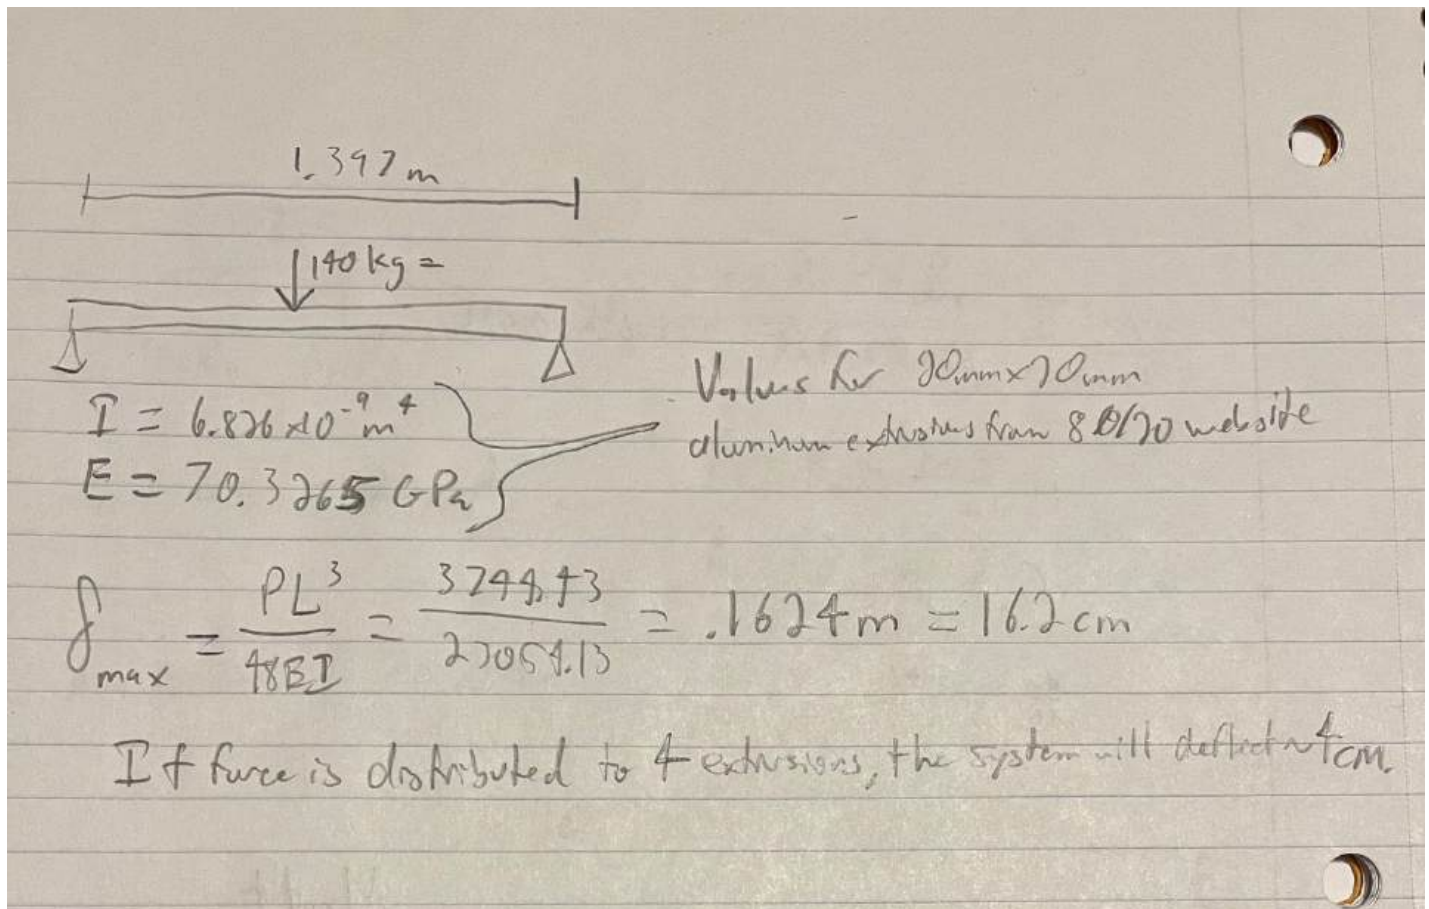 1.397 m
140 kg =
I = 6.826 x10⁻⁹ m⁴
E = 70.3265 GPa
Values for 20mm x 20mm
aluminum extrusions from 80/20 website
δmax = PL³/48EI = 3744.43/23054.13 = .1624 m = 16.2 cm
If force is distributed to 4 extrusions, the system will deflect ~4cm.